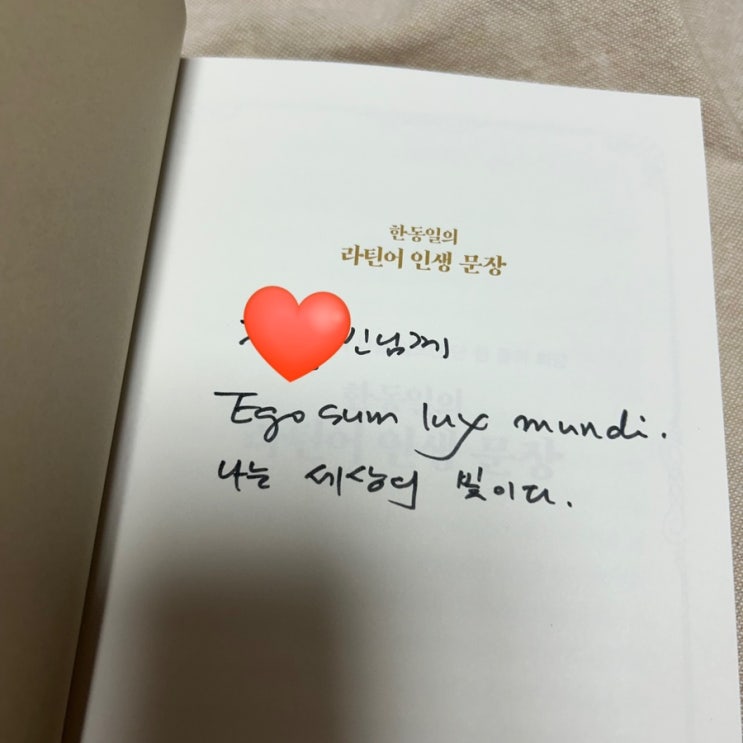 한동일의
라틴어 인생 문장
인님께
Ego sum lux mundi.
나는 세상의 빛이다.